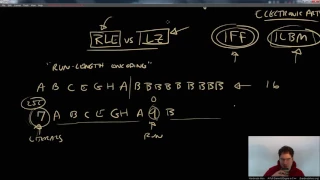 ELECTRONIC ART
RLE vs LZ
IFF
ILBM
"RUN-LENGTH ENCODING"
A B C E G H A B B B B B B B B B ← 16
0
7 A B C E G H A 9 B
LITERALS
RUN